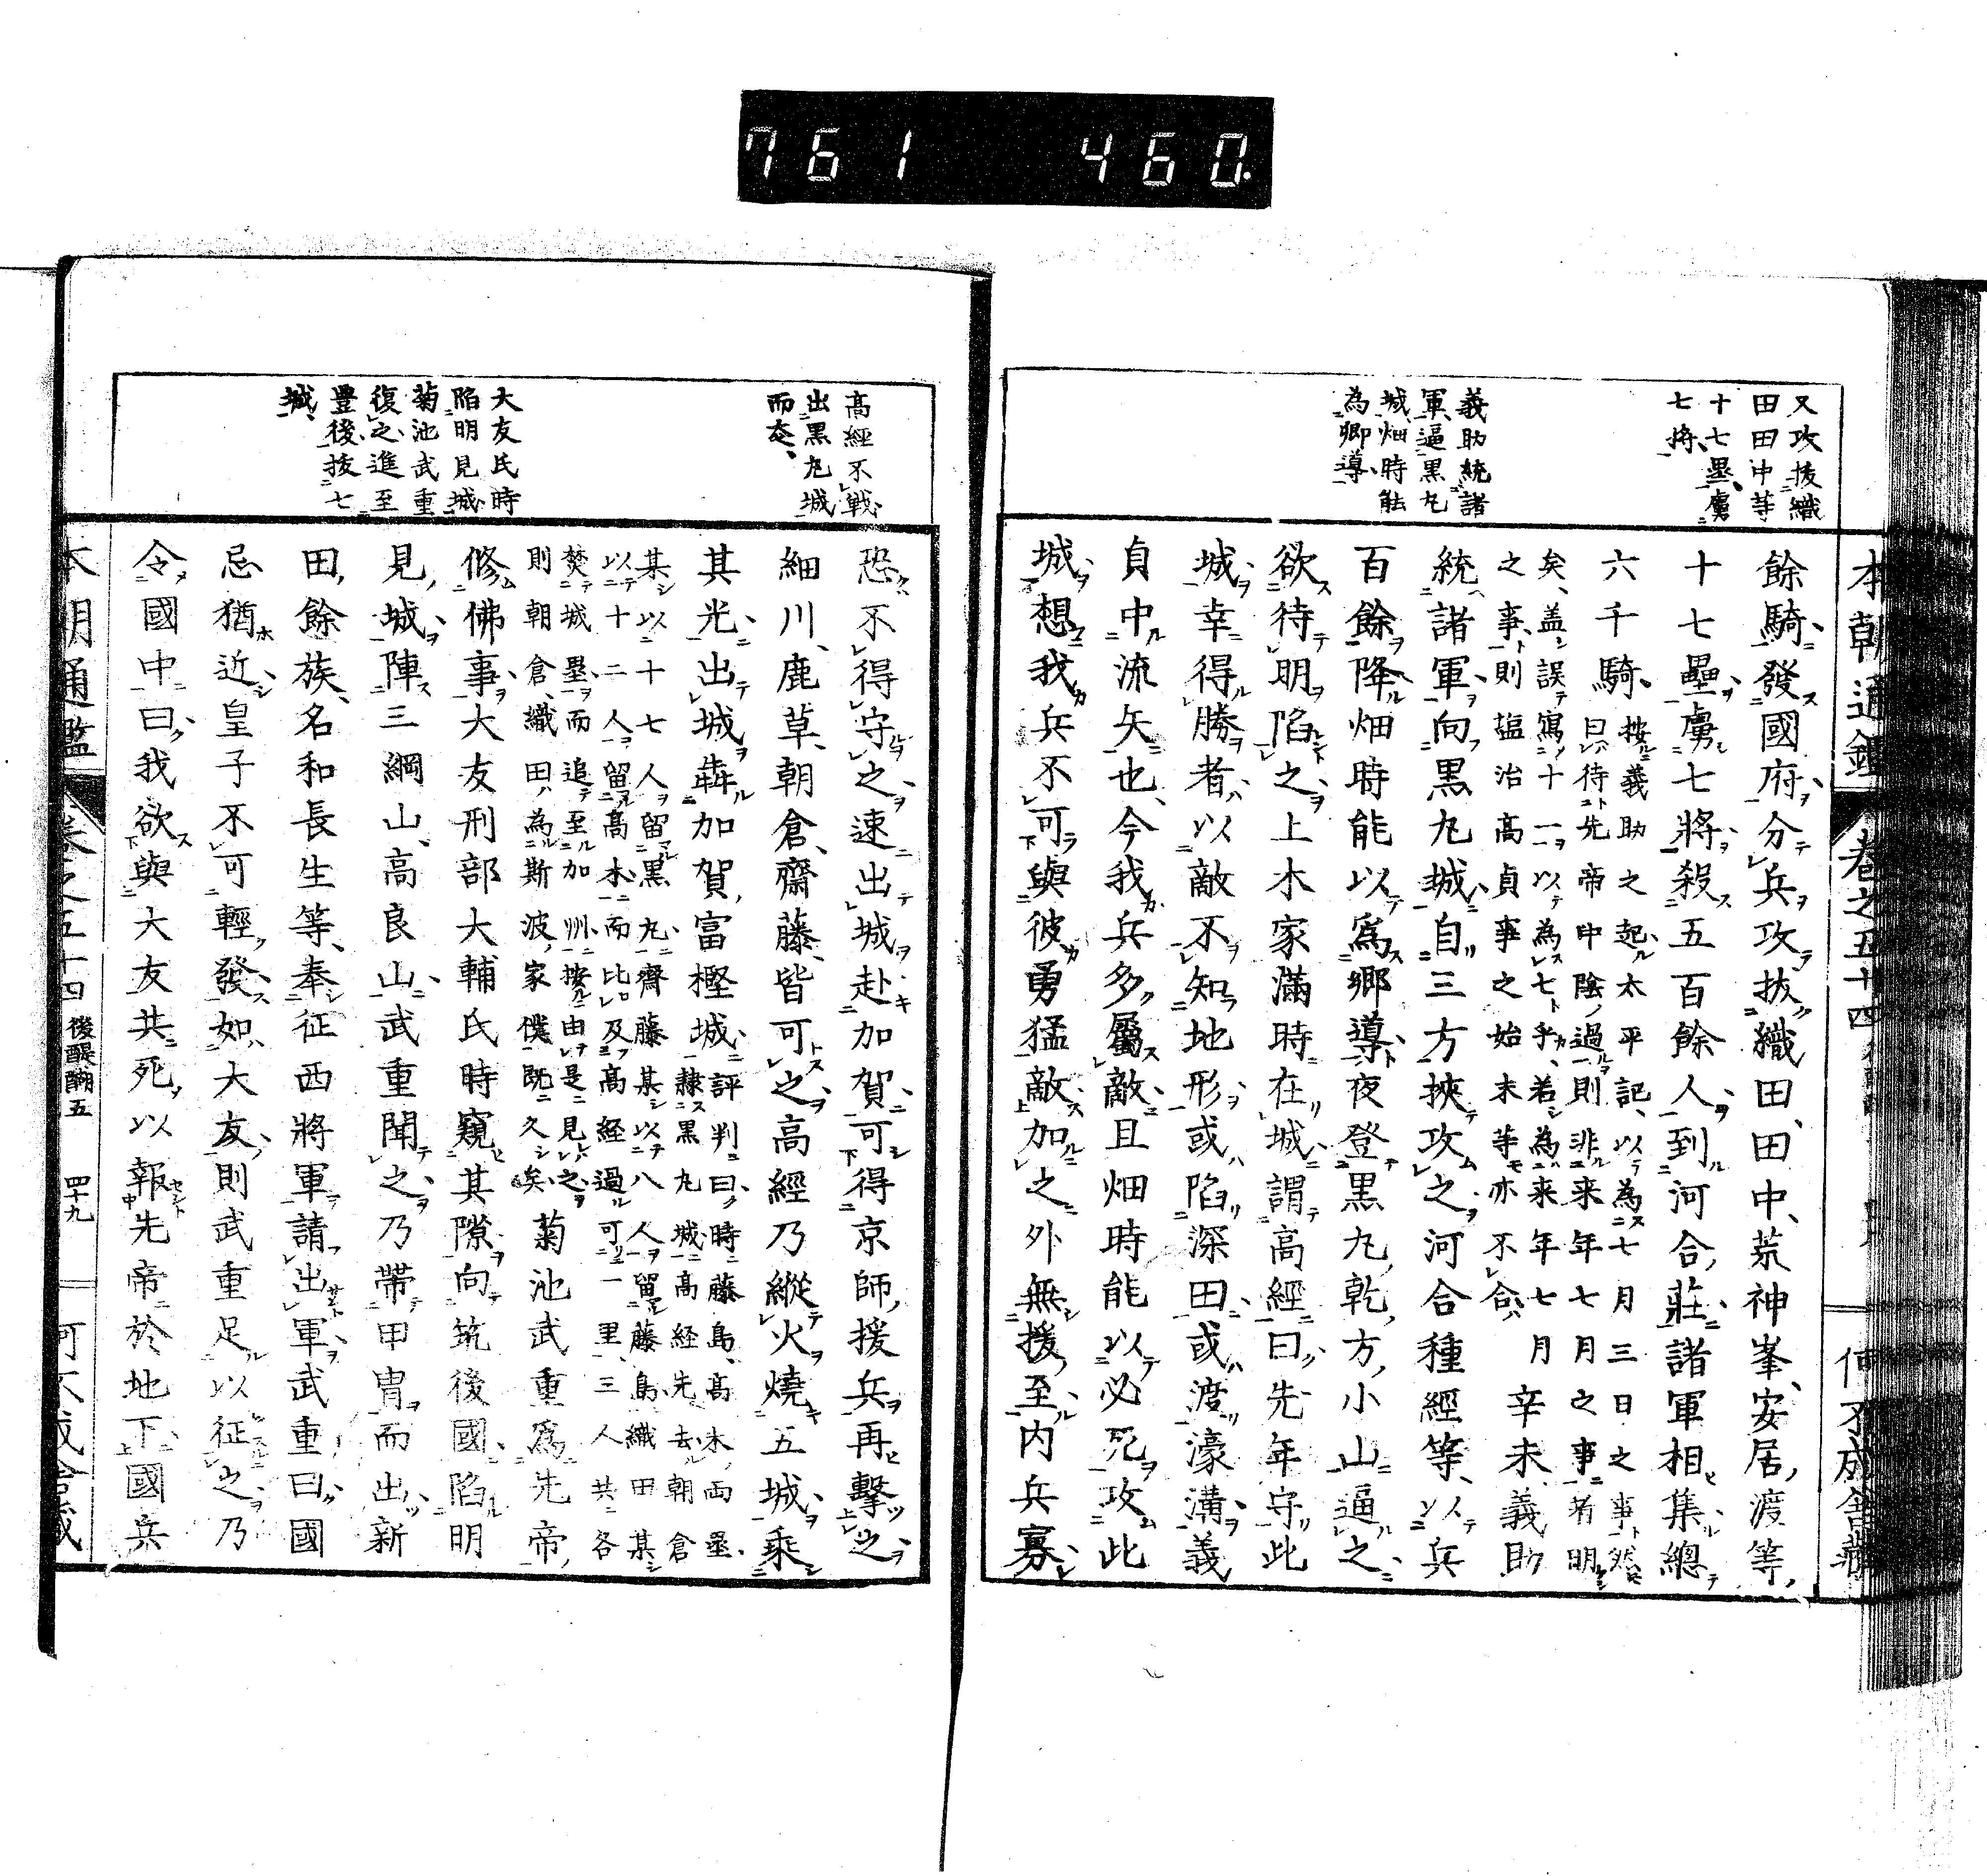 761 460.
又攻拔織
田田中等
十七壘虜
七将
義助統諸
軍逼黒丸
城畑時能
為卿導
本朝通鑑 卷之五十四 何不成舎藏
餘騎發國府分兵攻拔織田田中荒神峯安居渡等
十七壘虜七將殺五百餘人到河合莊諸軍相集總
六千騎
按義助之起太平記以為七月三日之事然
曰待先帝中陰過則非来年七月之事者明
矣盖誤寫十一以為七乎若為来年七月辛未義助
之事則塩治高貞事之始末等亦不合
統諸軍向黒丸城自三方挾攻之河合種經等以兵
百餘降畑時能以爲鄉導夜登黒丸乾方小山逼之
欲待明陷之上木家滿時在城謂高經曰先年守此
城幸得勝者以敵不知地形或陷深田或渡濠溝義
貞中流矢也今我兵多屬敵且畑時能以必死攻此
城想我兵不可與彼勇猛敵加之外無援至内兵寡
高經不戰
出黒丸城
而去
大友氏時
陷明見城
菊池武重
復之進至
豐後拔七
城
恐不得守之速出城赴加賀可得京師援兵再擊之
細川鹿草朝倉齋藤皆可之高經乃縱火燒五城乘
其光出城犇加賀富樫城
評判曰時藤島高木両壘
隷黒丸城高経先去朝倉
某以十七人留黒丸齊藤某以八人留藤島織田某
以十二人留髙木而比及高経過可一里三人共各
焚城壘而追至加州按由是見之
則朝倉織田為斯波家僕既久矣
菊池武重爲先帝
修佛事大友刑部大輔氏時窺其隙向筑後國陷明
見城陣三綱山高良山武重聞之乃帶甲冑而出新
田餘族名和長生等奉征西將軍請出軍武重曰國
忌猶近皇子不可輕發如大友則武重足以征之乃
令國中曰我欲與大友共死以報先帝於地下國兵
本朝通鑑 卷之五十四 後醍醐五 四十九 何不成舎藏